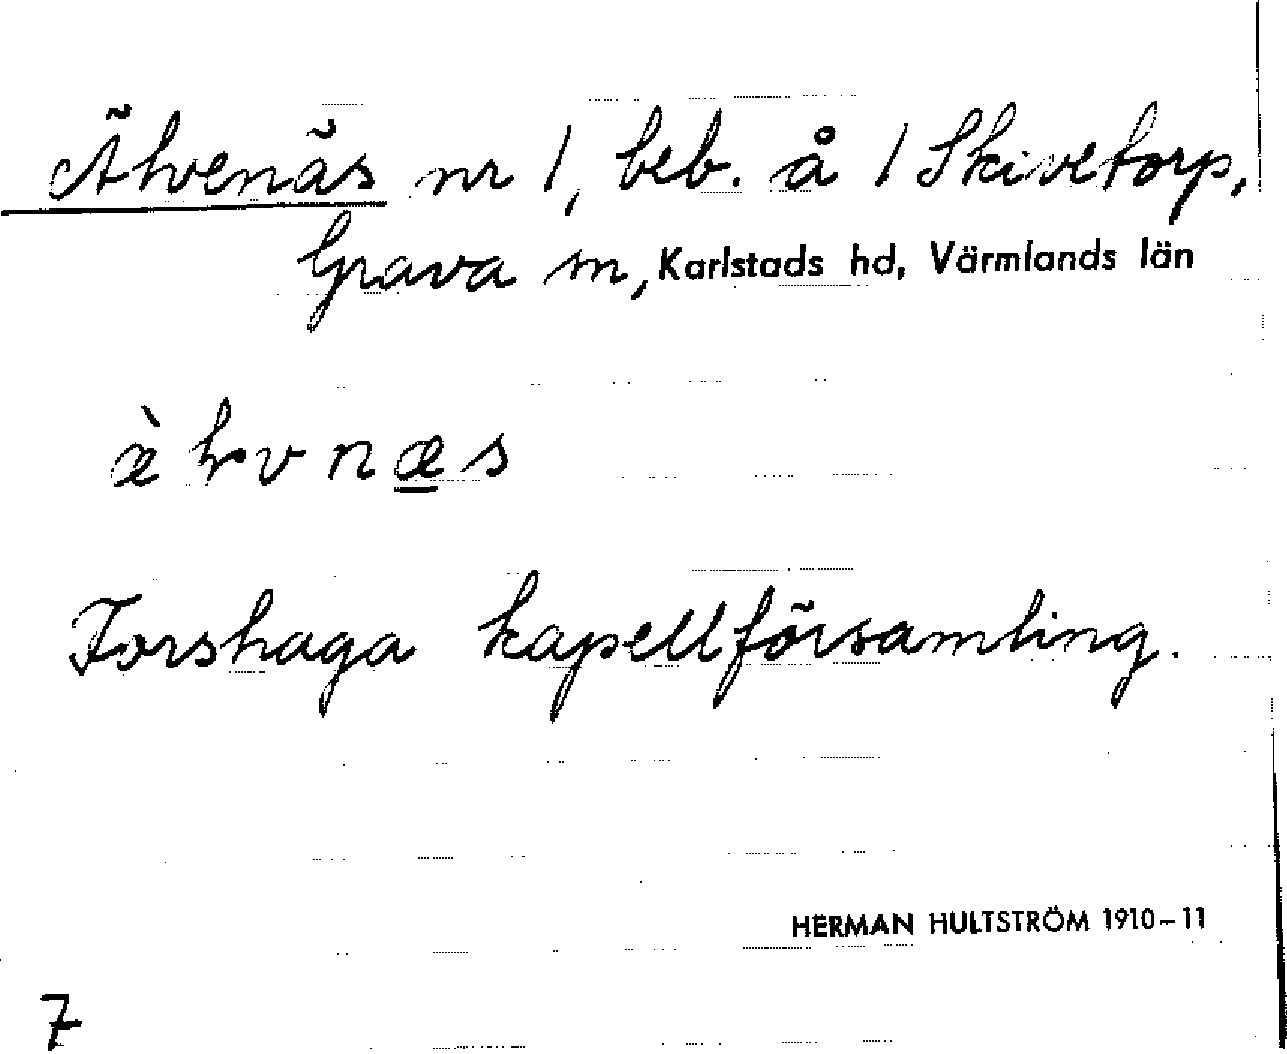 Älvenäs nr 1, beb. å 1 Skivetorp,
Grava sn, Karlstads hd, Värmlands län
æ̀ lvnæs
Forshaga kapellförsamling.
HERMAN HULTSTRÖM 1910–11
7